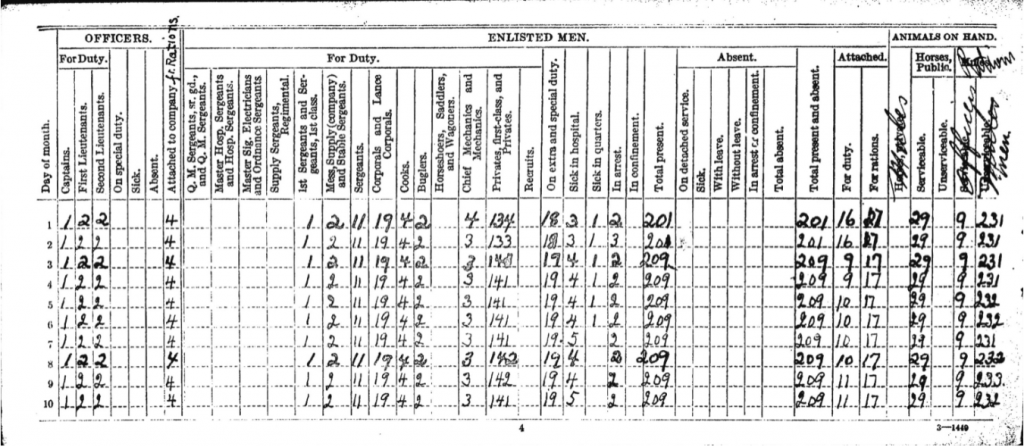 OFFICERS. ENLISTED MEN. ANIMALS ON HAND.
For Duty. For Duty. Absent. Attached. Horses, Public.
Day of month.
Captains.
First Lieutenants.
Second Lieutenants.
On special duty.
Sick.
Absent.
Attached to company for Rations.
Q. M. Sergeants, sr. gd., and Q. M. Sergeants.
Master Hosp. Sergeants and Hosp. Sergeants.
Master Sig. Electricians and Ordnance Sergeants
Supply Sergeants, Regimental.
1st Sergeants and Sergeants, 1st class.
Mess, Supply (company) and Stable Sergeants.
Sergeants.
Corporals and Lance Corporals.
Cooks.
Buglers.
Horseshoers, Saddlers, and Wagoners.
Chief Mechanics and Mechanics.
Privates, first-class, and Privates.
Recruits.
On extra and special duty.
Sick in hospital.
Sick in quarters.
In arrest.
In confinement.
Total present.
On detached service.
Sick.
With leave.
Without leave.
In arrest or confinement.
Total absent.
Total present and absent.
For duty.
For rations.
Serviceable.
Unserviceable.
men
1 1 2 2 4 1 2 11 19 4 2 4 134 18 3 1 2 201 201 16 27 29 9 231
2 1 2 2 4 1 2 11 19 4 2 3 133 18 3 1 3 201 201 16 27 29 9 231
3 1 2 2 4 1 2 11 19 4 2 3 19 4 1 2 209 209 9 17 29 9 231
4 1 2 2 4 1 2 11 19 4 2 3 141 19 4 1 2 209 209 9 17 29 9 231
5 1 2 2 4 1 2 11 19 4 2 3 141 19 4 1 2 209 209 10 17 29 9 232
6 1 2 2 4 1 2 11 19 4 2 3 141 19 4 1 2 209 209 10 17 29 9 232
7 1 2 2 4 1 2 11 19 4 2 3 141 19 5 2 209 209 10 17 29 9 231
8 1 2 2 4 1 2 11 19 4 2 3 142 19 4 2 209 209 10 17 29 9 232
9 1 2 2 4 1 2 11 19 4 2 3 142 19 4 2 209 209 11 17 29 9 233
10 1 2 2 4 1 2 11 19 4 2 3 141 19 5 2 209 209 11 17 29 9 232
4 3—1449